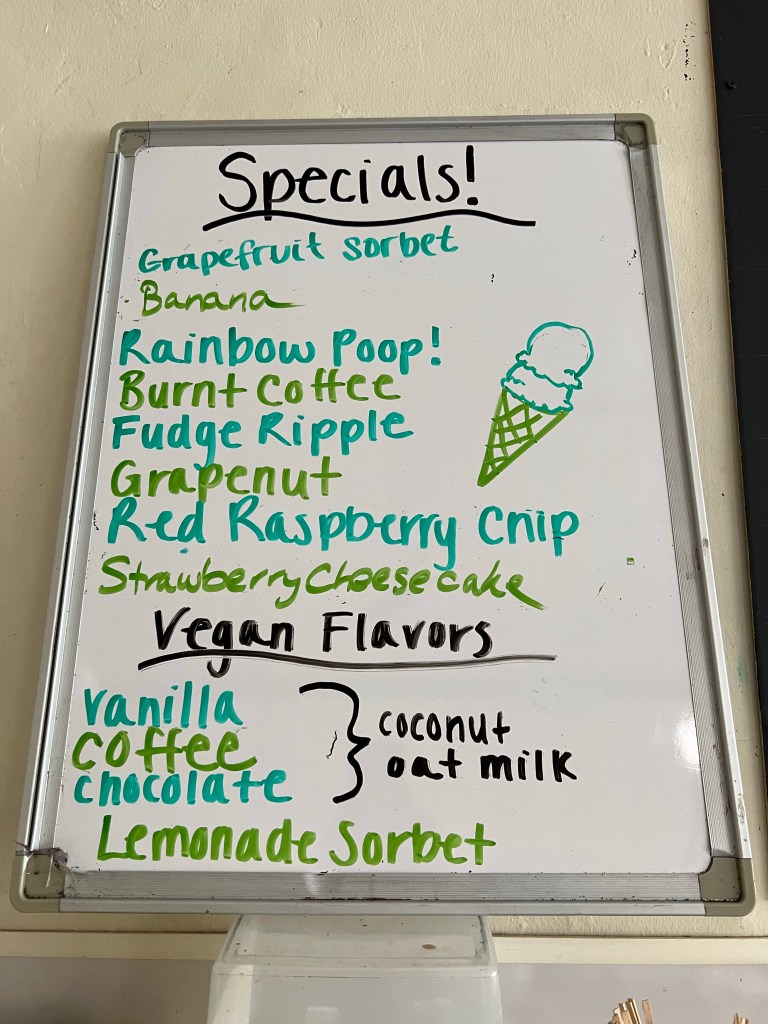 Specials!
Grapefruit sorbet
Banana
Rainbow Poop!
Burnt Coffee
Fudge Ripple
Grapenut
Red Raspberry Chip
Strawberry Cheesecake
Vegan Flavors
vanilla
coffee
chocolate
coconut
oat milk
Lemonade Sorbet